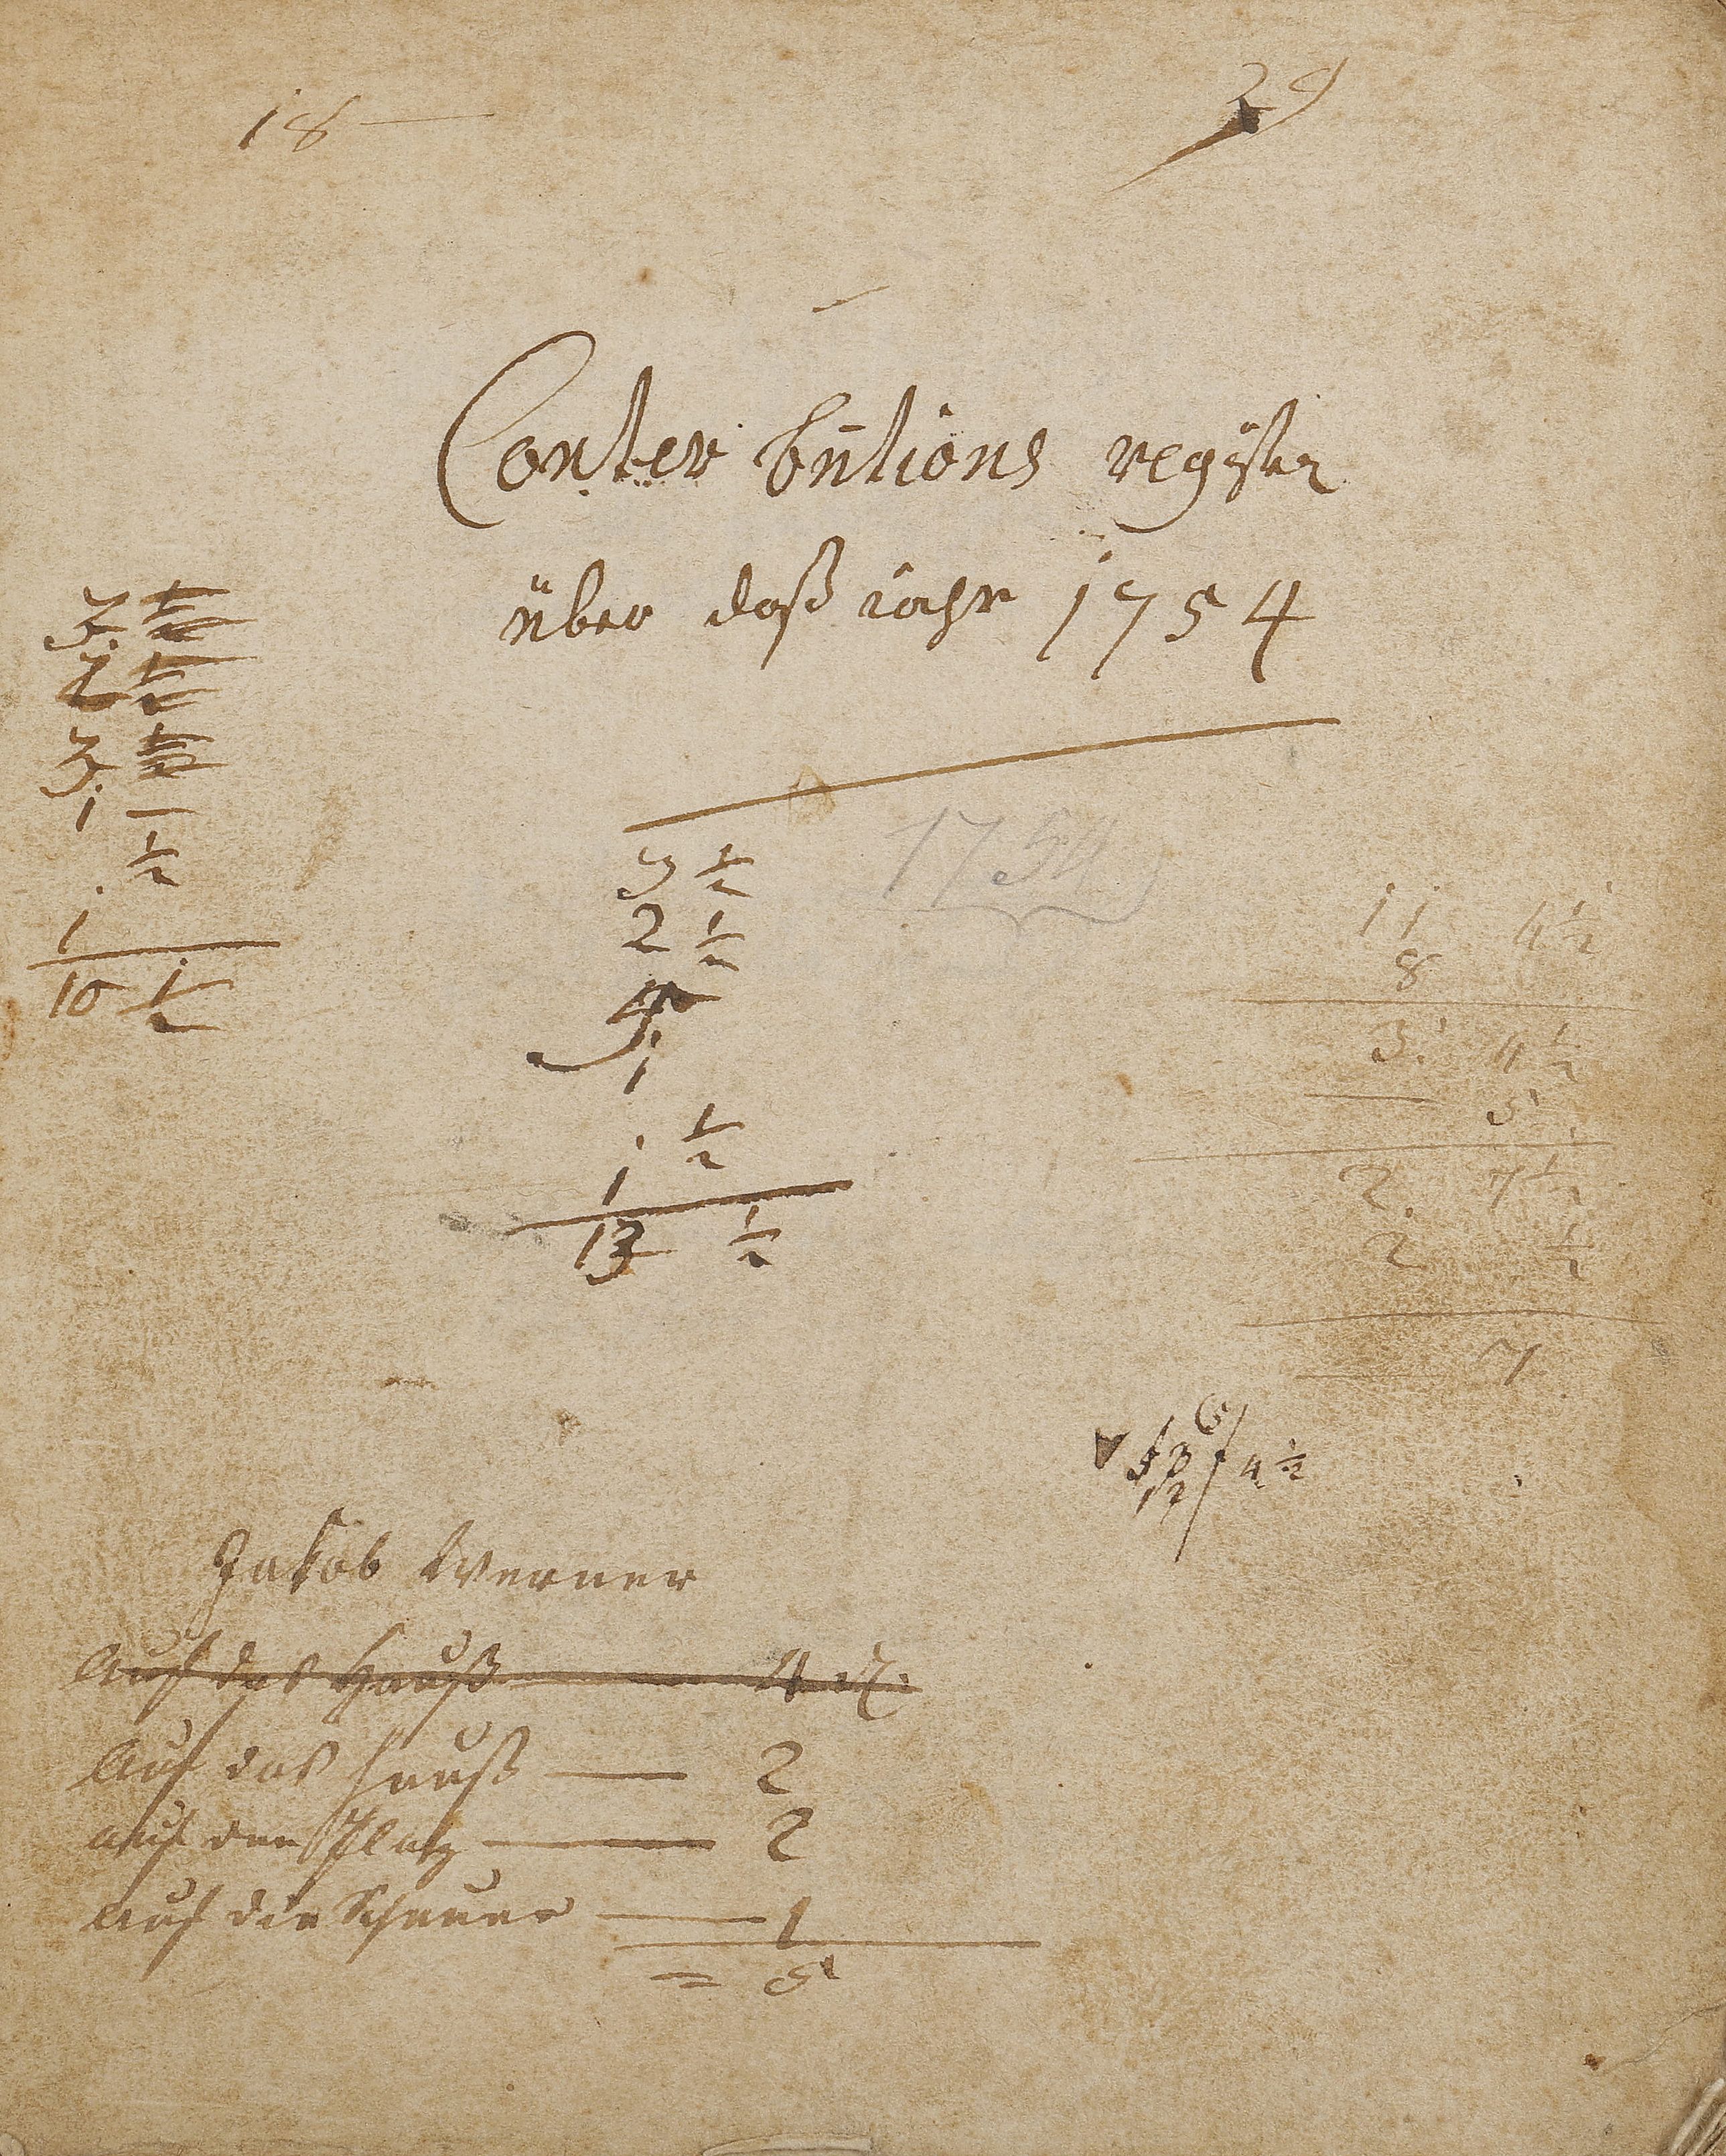 18 —
29
Conter butions register
über daß iahr 1754
3. ½
2 ½
3. ½
1 —
. ½
1
10 ½
1754
3 ½
2 ½
4
1
. ½
1
13 ½
11 4½
8
3. 4½
— 5
2. 7½
2 ½
— 7
4½
Jakob Werner
Auf das Hauß — 4 x.
Auf das Hauß — 2
auf den Platz — 2
Auf die Scheuer — 1
= 5